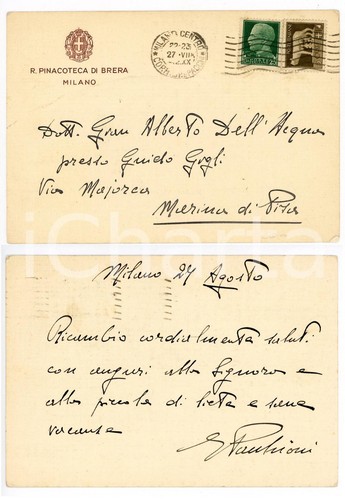 R. PINACOTECA DI BRERA
MILANO
MILANO CENTRO
22-23
27 VIII
Dott. Gian Alberto Dell'Acqua
presso Guido Gogli
Via Majorca
Marina di Pisa
iCharta
Milano 27 Agosto
Ricambio cordialmente saluti
con auguri alla Signora e
alla piccola di lieta e sana
vacanza